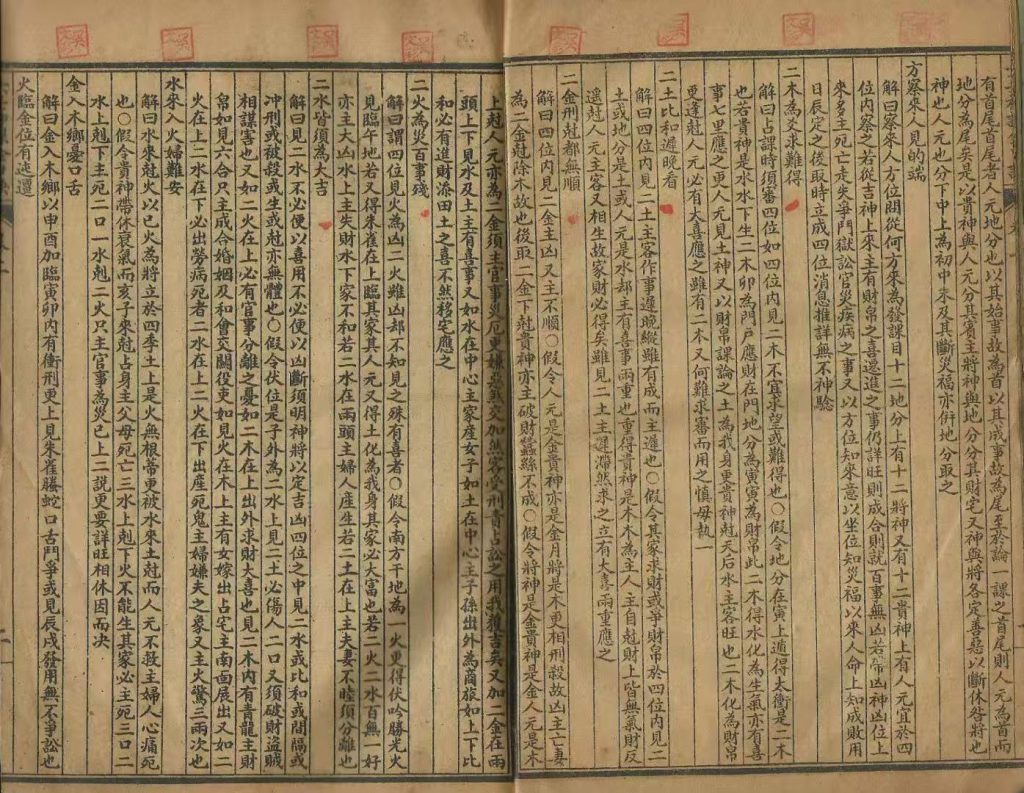 有首尾首尾者人元地分也以其始事故為首以其成事故為尾至於論一課之首尾則人元為首而
地分為尾矣是以貴神與人元分其賓主將神與地分分其財宅又神與將各定善惡以斷休咎將也
神也人元也分下中上為初中末及其斷災福亦併地分取之
方察來人見的端
解曰來人方位問從何方來為發課目十二地分上有十二將神又有十二貴神上有人元宜於四
位內察之若從吉神上來主有財帛之喜還進之事仍詳旺則成合則就百事無凶若而凶神凶位上
來多主死亡走失爭鬥獄訟官災疾病之事又以方位知來意以坐位知災福以來人命上知成敗用
日辰定之後取時立成四位消息推詳無不神驗
二木為爻求難得
解曰占課時須審四位如四位內見二木不宜求望或難得也○假令地分在寅上遁得太衝是二木
也若貴神是水水下生二木卯為門戶應財在門地分為寅寅為財帛此二木得水化為生氣亦有喜
事七里應之更人元見土神又以財帛課論之土為我身更貴神尅天后水主客旺也二木化為財帛
更逢尅人元必有大喜應之雖有二木又何難求審而用之慎毋執一
二土比和遲晚看
解曰四位內見二土主客作事遲晚縱雖有成而主遲也○假令其家求財或爭財帛於四位內見二
土或地分是土或人元是水却主有喜事兩重也重得貴神是木木為主人主自尅財上皆無氣財反
遥尅人元主客又相生故家財必得矣雖見二土主遲滯然求之立有大喜兩重應之
二金刑尅都無順
解曰四位內見二金主凶又主不順○假令人元是金貴神亦是金月將是木更相刑殺故凶主亡妻
為二金尅除木故也後取二金下尅貴神亦主破財蠶絲不成○假令將神是金貴神是金人元是木
上尅人元亦為二金須主官事災厄更嫌惡煞交加煞害受刑責占訟之用我獲吉矣又加二金在兩
頭上下見水及土主有喜事又如水在中心主家產女子如土在中心主子孫出外為商旅如上下比
和必有進財添田土之喜不然移宅應之
二火為災百事殘
解曰謂四位見火為凶二火雖凶却不知見之殊有喜者○假令南方干地為一火更得伏吟勝光火
見臨午地若又得朱雀在上臨其家其人元又得土化為我身其家必大富也若二火二水百無一好
亦主大凶水上主失財水下家不和若二水在兩頭主婦人產生若二土在上主夫妻不睦須分離也
二水皆須為大吉
解曰見二水不必便以喜用不必便以凶斷須明神將以定吉凶四位之中見二水或比和或間隔或
冲刑或被殺或生或尅亦無體也○假令伏位是子外為二水上見二土必傷人二口又須破財盜賊
相謀害也又如二火在上必有官事分離之憂如二木在上出外求財大喜也見二木內有青龍主財
帛如見六合只主成合婚姻及和會交關役吏如見火在木上主有女嫁出占宅主南面展出又如二
火在上二水在下必出勞病死者二水在上二火在下出產死鬼主婦嫌夫之象又主火驚三兩次也
水來入火婦難安
解曰水來尅火以巳火為將立於四季土上是火無根蒂更被水來土尅而人元不救主婦人心痛死
也○假令貴神帶休衰氣而亥子來尅占身主父母死亡三水上剋下火不能生其家必主死三口二
水上剋下主死二口一水剋二火只主官事為災已上二説更要詳旺相休囚而决
金入木鄉憂口舌
解曰金入木鄉以申酉加臨寅卯內有衝刑更上見朱雀螣蛇口舌鬥爭或見辰戌發用無不爭訟也
火臨金位有迍邅